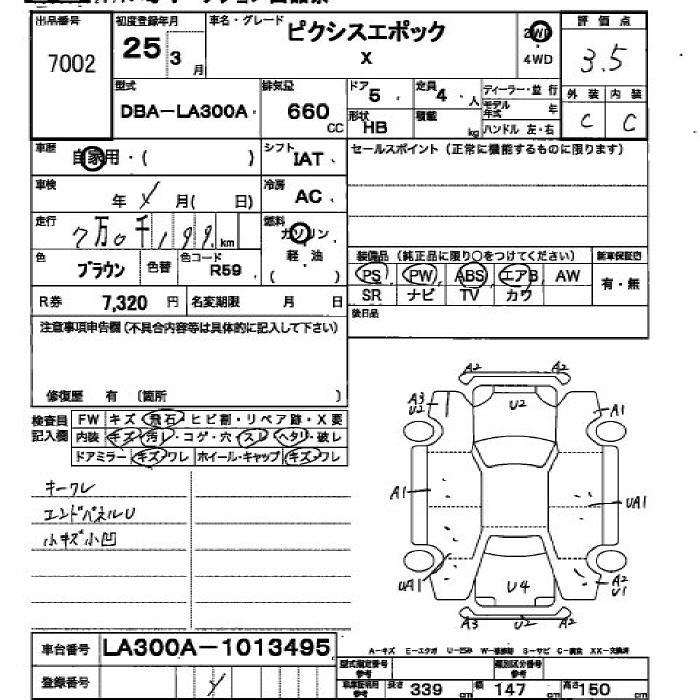 出品番号 初度登録年月 車名・グレード 評価点
7002 25 3月 ピクシスエポック X 2WD 4WD 3.5
型式 排気量 ドア 5 定員 4人 ディーラー・並行 外装 内装
DBA-LA300A 660 CC 形状 HB 積載 kg モデル年式 年 C C
ハンドル 左・右
車歴 自家用・( ) シフト IAT セールスポイント (正常に機能するものに限ります)
車検 年 月( 日) 冷房 AC
走行 7万0千,199 km 燃料 ガソリン
色 ブラウン 色替 色コード R59 軽・油 ( )
装備品 (純正品に限り○をつけてください) 新車保証書
PS PW ABS エアB AW 有・無
SR ナビ TV カワ
R券 7,320 円 名変期限 月 日 後日品
注意事項申告欄 (不具合内容等は具体的に記入して下さい)
修復歴 有 (箇所 )
検査員記入欄 FW キズ・飛石・ヒビ割・リペア跡・X要
内装 キズ・汚レ・コゲ・穴・スレ・ヘタリ・破レ
ドアミラー キズ・ワレ ホイール・キャップ キズ・ワレ
キーワレ
エンドパネルU
小キズ小凹
A2 A2
A3 U2 U2 A1
A1 UA1
UA1 U4 A2 U1
A3 U2 A2
車台番号 LA300A-1013495
A-キズ E-エクボ U-凹み S-サビ C-腐食 XX-交換済
登録番号
型式指定番号 参考 類別区分番号 参考
長さ 339 cm 幅 147 cm 高さ 150 cm